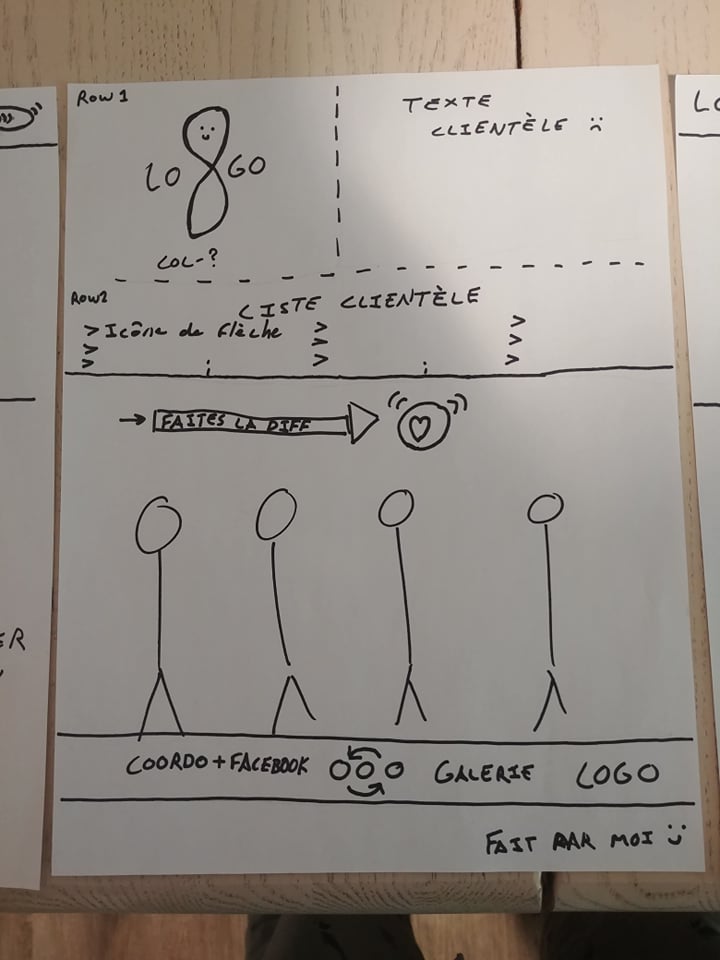 Row 1
TEXTE
CLIENTÈLE
LO GO
LOL-?
Row2
LISTE CLIENTÈLE
> Icône de flèche >
>
> >
> >
> >
→ FAITES LA DIFF
COORDO + FACEBOOK GALERIE LOGO
FAIT PAR MOI
ER
LO